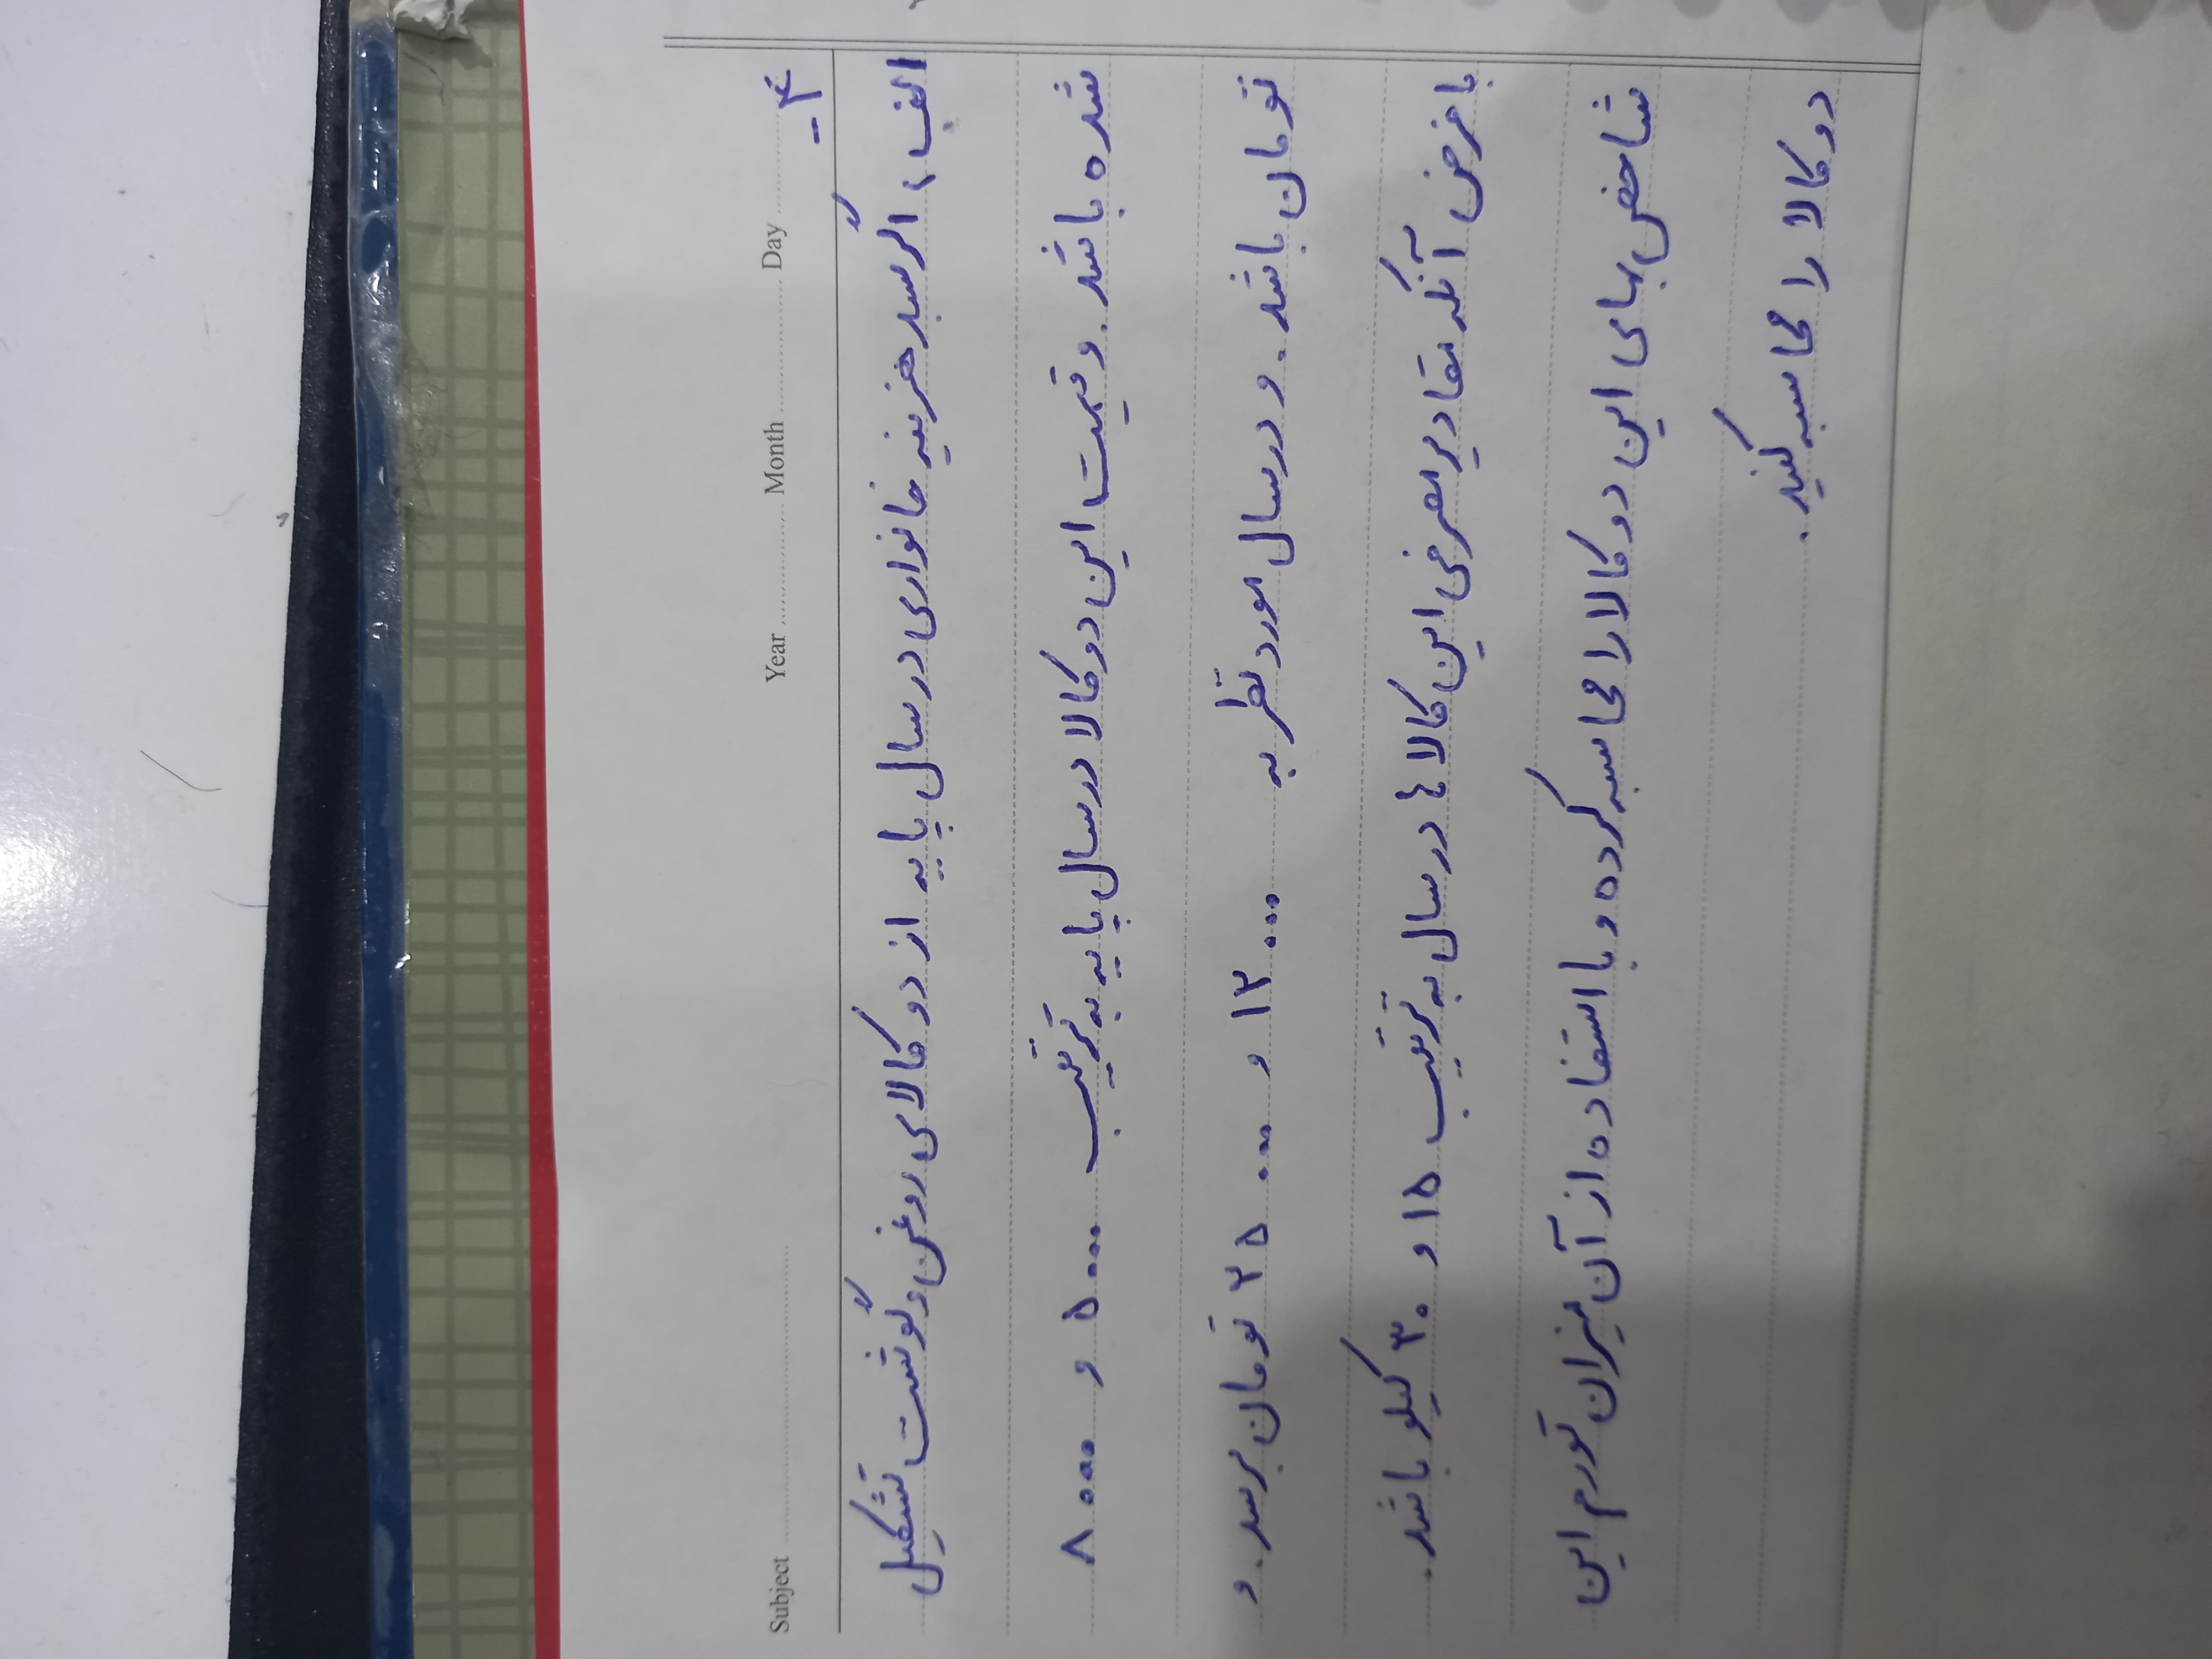 Subject ........ Year ........ Month ........ Day ........
۴-
الف، اگر سبد هزینه خانواری در سال پایه از دو کالای روغن و گوشت تشکیل
شده باشد. و قیمت این دو کالا در سال پایه به ترتیب ۵۰۰۰ و ۸۰۰۰
تومان باشد. و در سال مورد نظر به ۱۳۰۰۰ و ۳۵۰۰۰ تومان برسد. و
با فرض آنکه مقادیر مصرفی این کالاها در سال به ترتیب ۱۵ و ۳۰ کیلو باشد.
شاخص بهای این دو کالا را محاسبه کرده و با استفاده از آن میزان تورم این
دو کالا را محاسبه کنید.